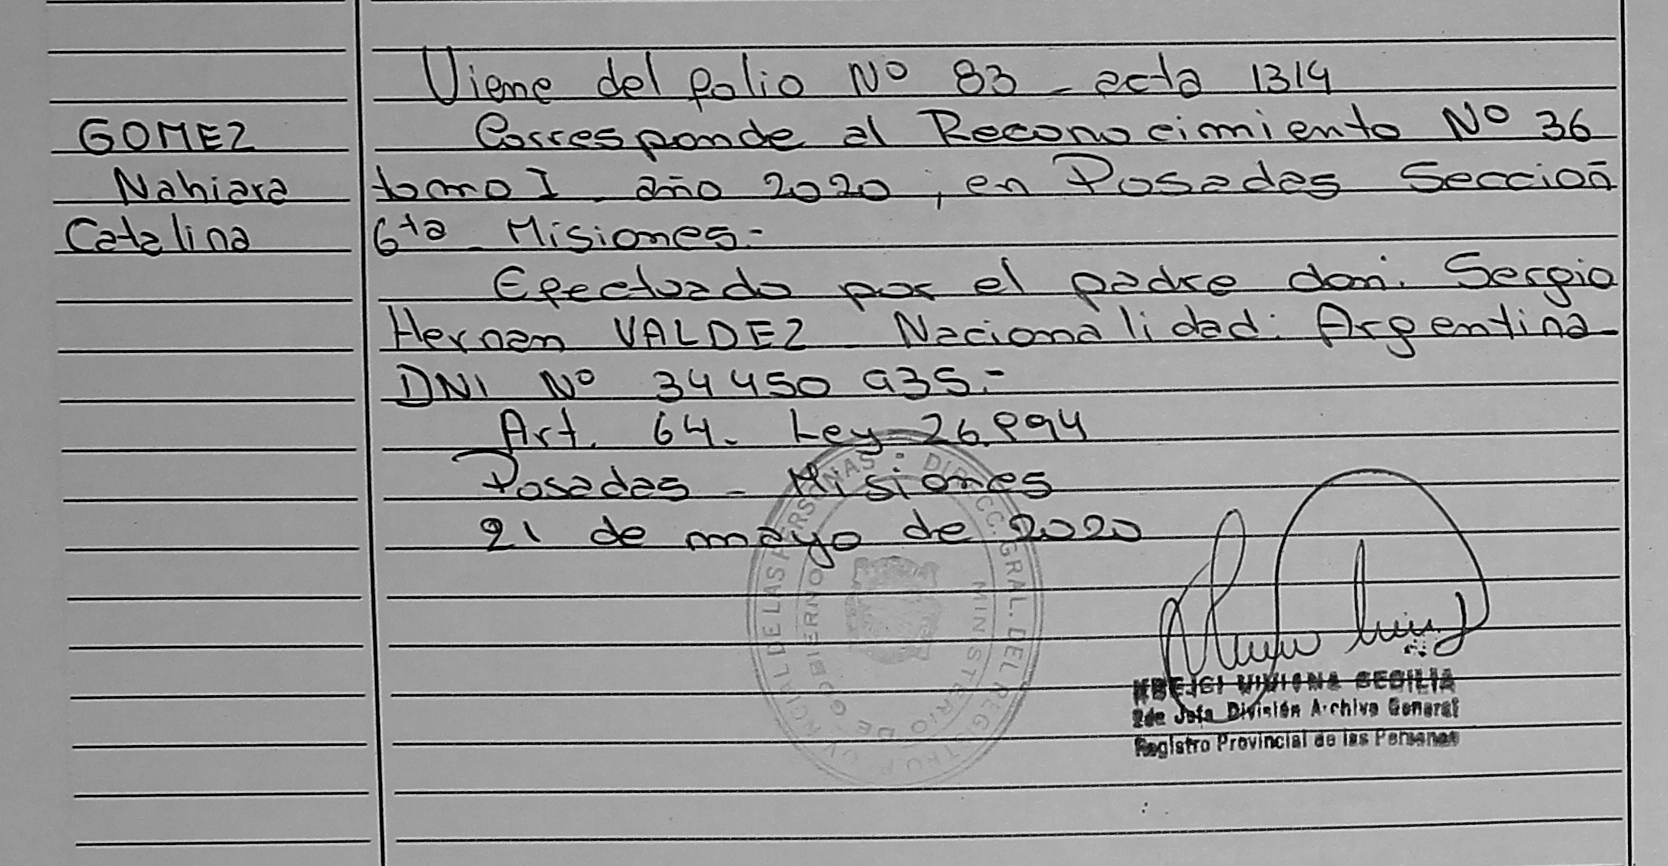 Viene del folio Nº 83 - acta 1314
GOMEZ
Nahiara
Catalina
Corresponde al Reconocimiento Nº 36
tomo I - año 2020, en Posadas Sección
6ta - Misiones.-
Efectuado por el padre don: Sergio
Hernan VALDEZ - Nacionalidad: Argentina
DNI Nº 34450935.-
Art. 64 - Ley 26.994
Posadas - Misiones
21 de mayo de 2020
DIRECC. GRAL. DEL REGISTRO PROVINCIAL DE LAS PERSONAS
MINISTERIO DE GOBIERNO
VIVIANA CECILIA
2da Jefa División Archivo General
Registro Provincial de las Personas